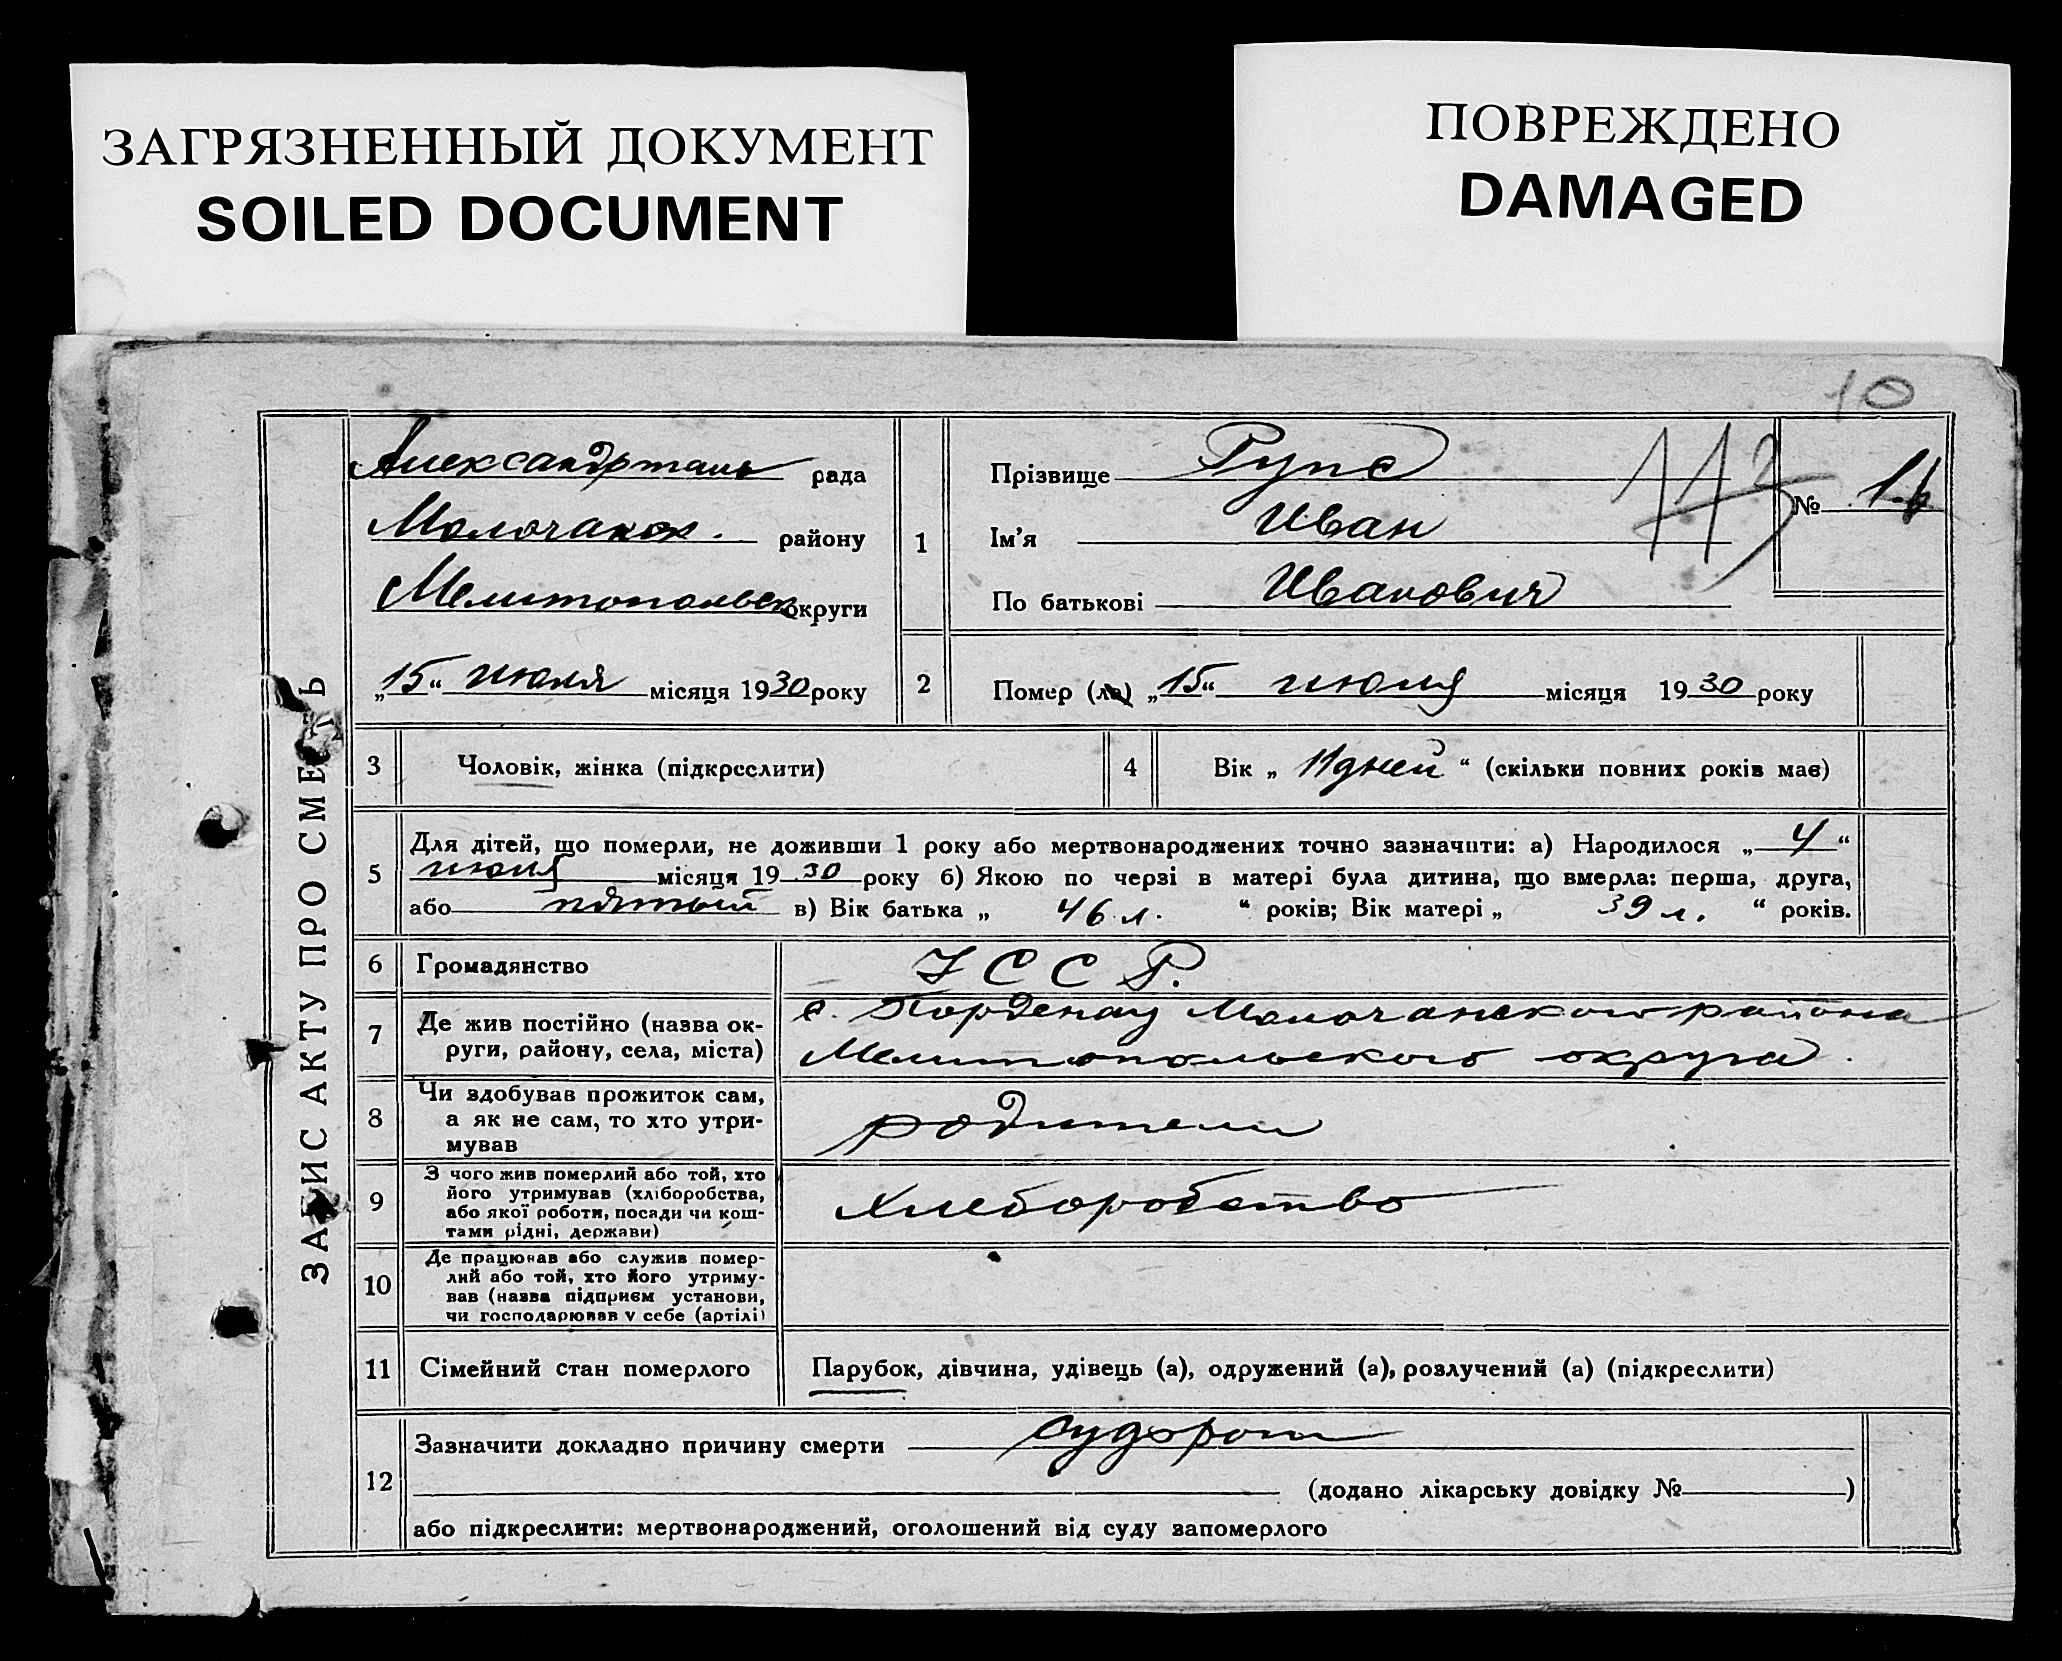 ЗАГРЯЗНЕННЫЙ ДОКУМЕНТ
SOILED DOCUMENT
ПОВРЕЖДЕНО
DAMAGED
10
ЗАПИС АКТУ ПРО СМЕРТЬ
Александрталь рада
Молочанск. району
Мелитопольск округи
„15“ июля місяця 1930 року
1
Прізвище
Ім'я Иван
По батькові Иванович
113
№
2
Помер (ла) „15“ июля місяця 1930 року
3 Чоловік, жінка (підкреслити)
4 Вік „ 11 дней “ (скільки повних років має)
5 Для дітей, що померли, не доживши 1 року або мертвонароджених точно зазначити: а) Народилося „ 4 “
июля місяця 1930 року б) Якою по черзі в матері була дитина, що вмерла: перша, друга,
або пятый в) Вік батька „ 46 л. “ років; Вік матері „ 39 л. “ років.
6 Громадянство УССР.
7 Де жив постійно (назва ок-
руги, району, села, міста)
с. Порденау Молочанского района
Мелитопольского округа.
8 Чи здобував прожиток сам,
а як не сам, то хто утри-
мував
родители
9 З чого жив померлий або той, хто
його утримував (хліборобства,
або якої роботи, посади чи кош-
тами рідні, держави)
хлеборобство
10 Де працював або служив помер-
лий або той, хто його утриму-
вав (назва підприєм установи,
чи господарював у себе (артілі)
11 Сімейний стан померлого Парубок, дівчина, удівець (а), одружений (а), розлучений (а) (підкреслити)
12 Зазначити докладно причину смерти судороги
(додано лікарську довідку № )
або підкреслити: мертвонароджений, оголошений від суду запомерлого